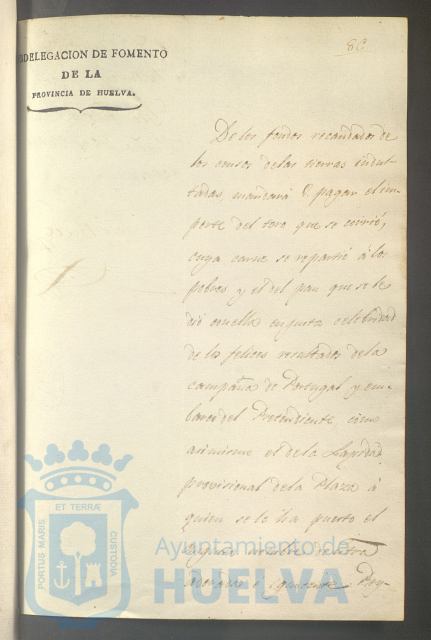 80
SUBDELEGACION DE FOMENTO
DE LA
PROVINCIA DE HUELVA.
De los fondos recaudados de
los censos de las tierras indul-
tadas, mandará V. pagar el im-
porte del toro que se corrió,
cuya carne se repartió á los
pobres y el del pan que se le
dió con ella en justa celebridad
de los felices resultados de la
campaña de Portugal y em-
barco del Pretendiente, como
asimismo el de la Lapida
provisional de la Plaza á
quien se le ha puesto el
PORTUS MARIS
ET TERRÆ
CUSTODIA
Ayuntamiento de
HUELVA